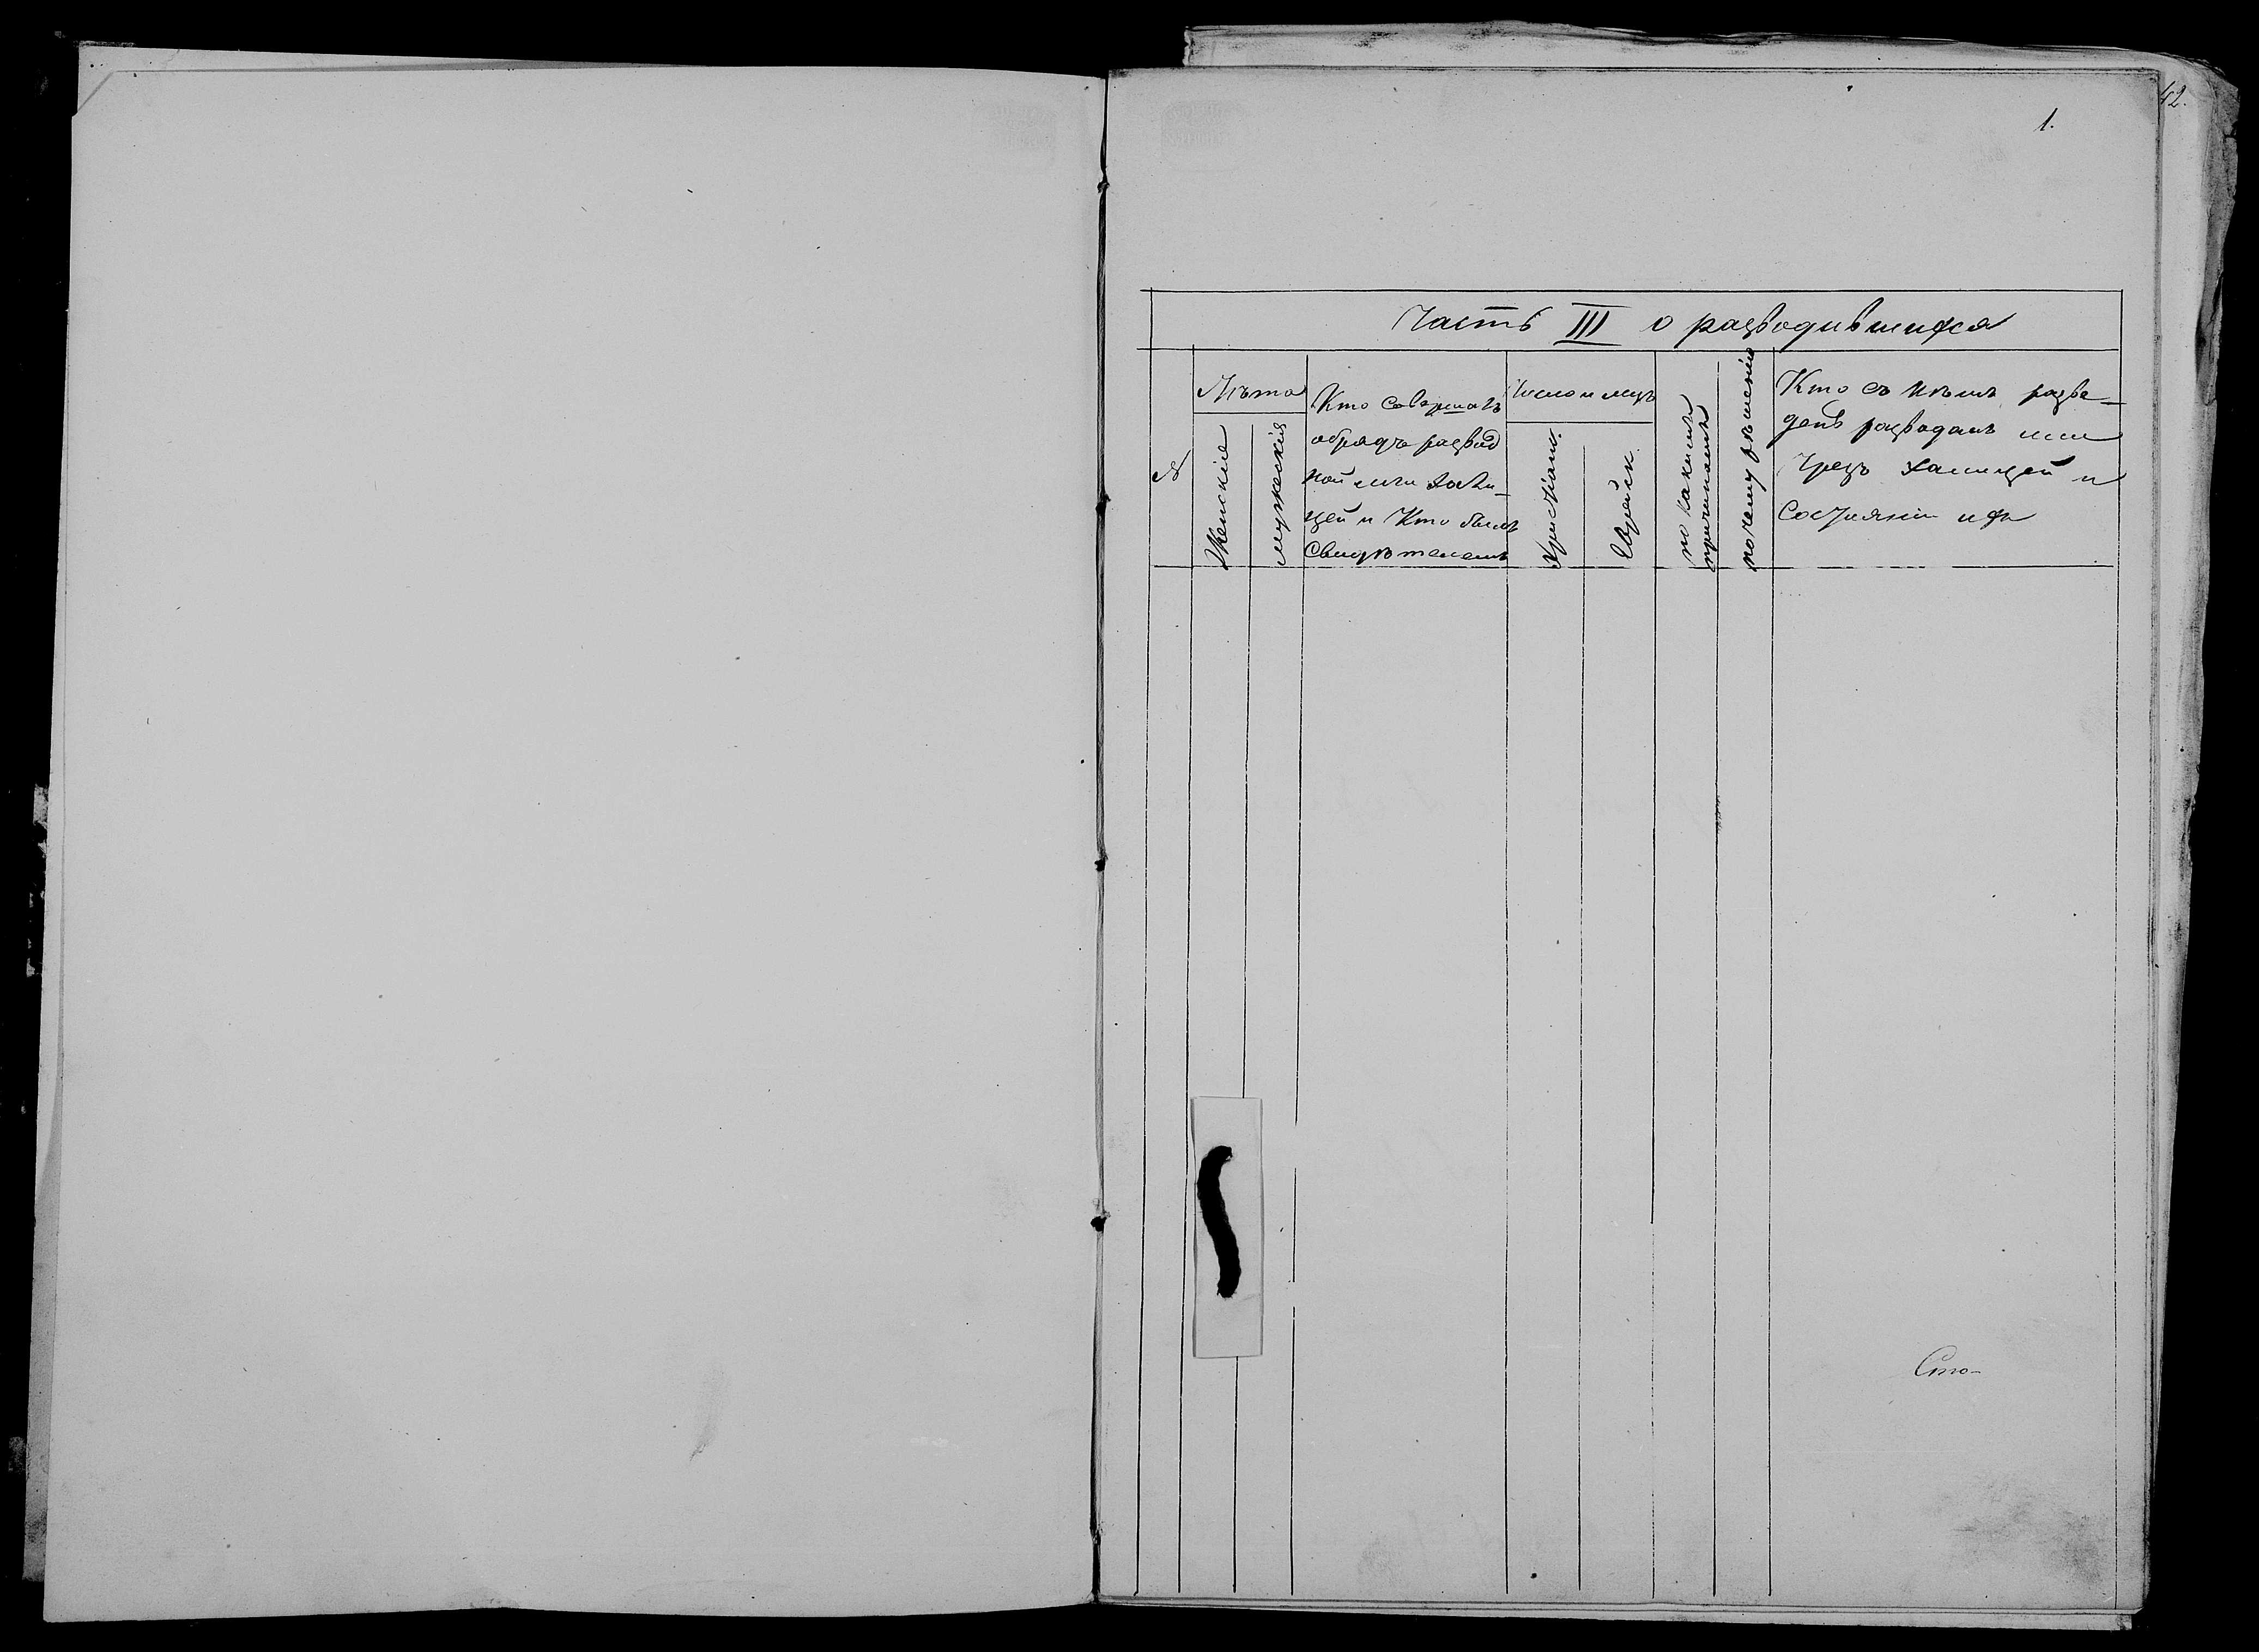 42.
1.
Часть III о разводившихся
№
Лѣта
Женскіе
мужескія
Кто совершалъ
обрядъ развод
ной или хали-
цей и Кто былъ
Свидѣтелемъ
Число и мѣцъ
Христіанс.
Еврейск.
по какимъ
причинамъ
по чему рѣшенію
Кто съ кѣмъ разве-
денъ разводомъ или
чрезъ халицей и
Состояніи ихъ
Сто-